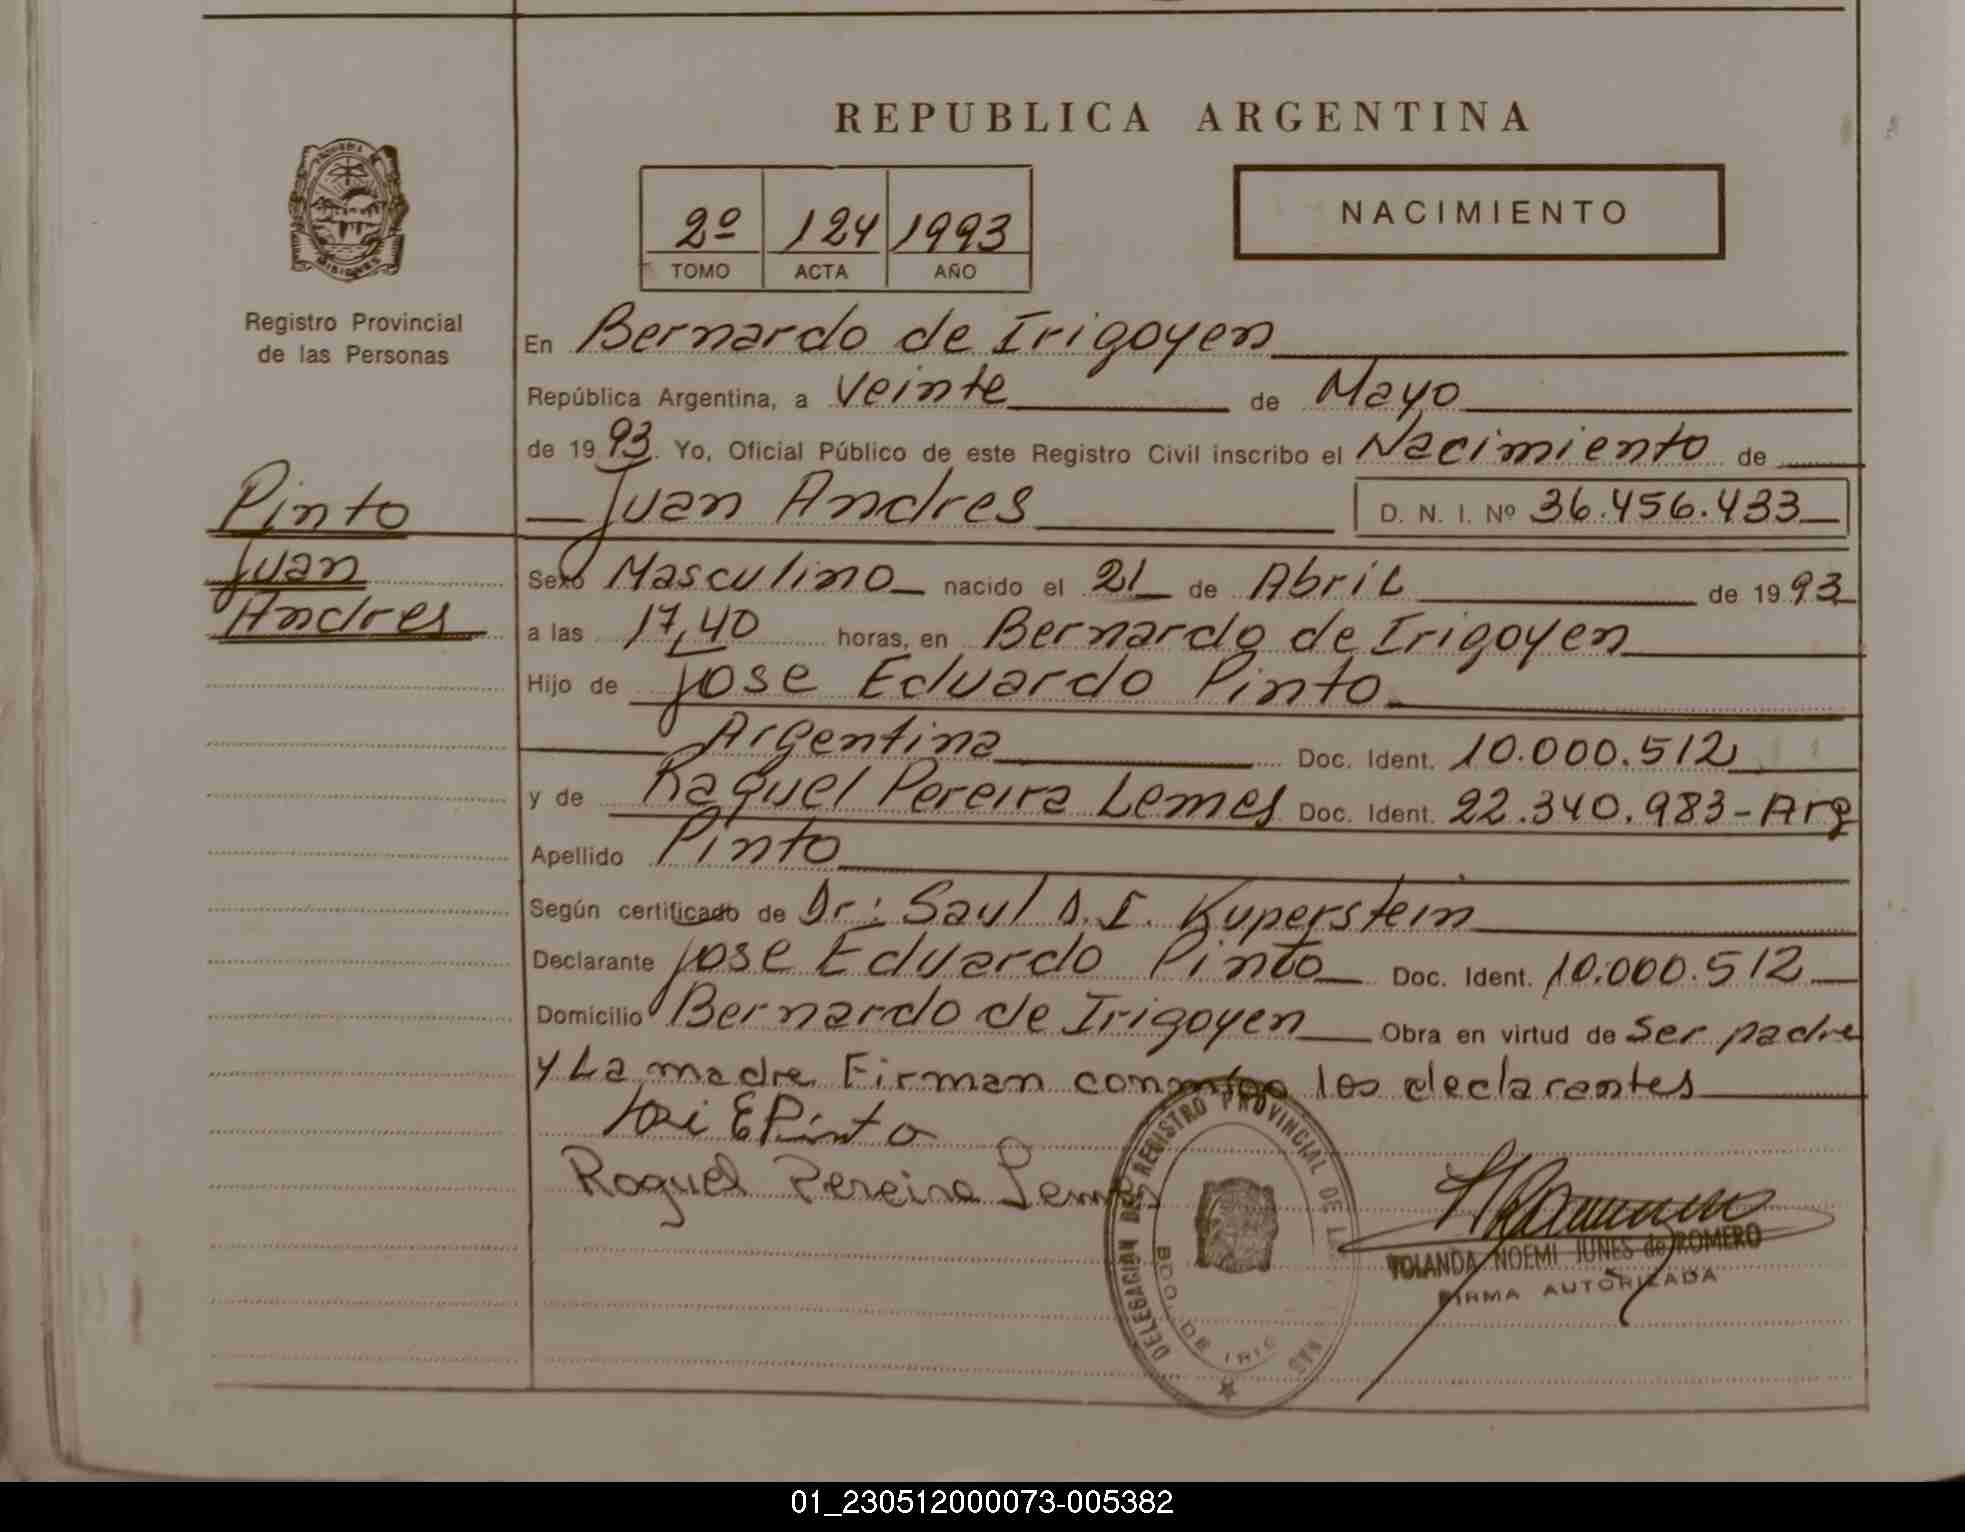 REPUBLICA ARGENTINA
NACIMIENTO
2º 124 1993
TOMO ACTA AÑO
MISIONES
Registro Provincial
de las Personas
Pinto
Juan
Andres
En Bernardo de Irigoyen
República Argentina, a Veinte de Mayo
de 1993. Yo, Oficial Público de este Registro Civil inscribo el Nacimiento de
Juan Andres D. N. I. Nº 36.456.433
Sexo Masculino nacido el 21 de Abril de 1993
a las 17,40 horas, en Bernardo de Irigoyen
Hijo de Jose Eduardo Pinto
Argentina Doc. Ident. 10.000.512
y de Raquel Pereira Lemes Doc. Ident. 22.340.983-Arg
Apellido Pinto
Según certificado de Dr: Saul D. I. Kuperstein
Declarante Jose Eduardo Pinto Doc. Ident. 10.000.512
Domicilio Bernardo de Irigoyen Obra en virtud de Ser padre
y La madre Firman conmigo los declarantes
José E Pinto
Raquel Pereira Lemes
DELEGACION DEL REGISTRO PROVINCIAL DE LAS
BDO. DE IRIG
YOLANDA NOEMI JUNES de ROMERO
FIRMA AUTORIZADA
01_230512000073-005382